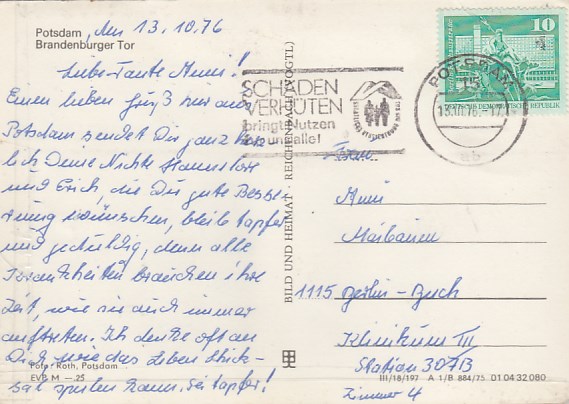 Potsdam, den 13.10.76
Brandenburger Tor
Liebe Tante Mimi!
Einen lieben Gruß hier aus
Potsdam sendet Dir ganz herz
lich Deine Nichte Hannelore
und Erich, die Dir gute Besse
rung wünschen, bleib tapfer
und geduldig, denn alle
Krankheiten brauchen ihre
Zeit, wie sie auch immer
auftreten. Ich denke oft an
Dich, wie das Leben Schick-
sal spielen kann. Sei tapfer!
Foto: Roth, Potsdam
EVP M —.25
BILD UND HEIMAT · REICHENBACH (VOGTL)
SCHÄDEN
VERHÜTEN
bringt Nutzen
für uns alle!
POTSDAM
15
13.10.76.-17
ub
10
DEUTSCHE DEMOKRATISCHE REPUBLIK
Frau
Mimi
Maibaum
1115 Berlin-Buch
Klinikum III
Station 307B
Zimmer 4
III/18/197 A 1/B 884/75 01 04 32 080